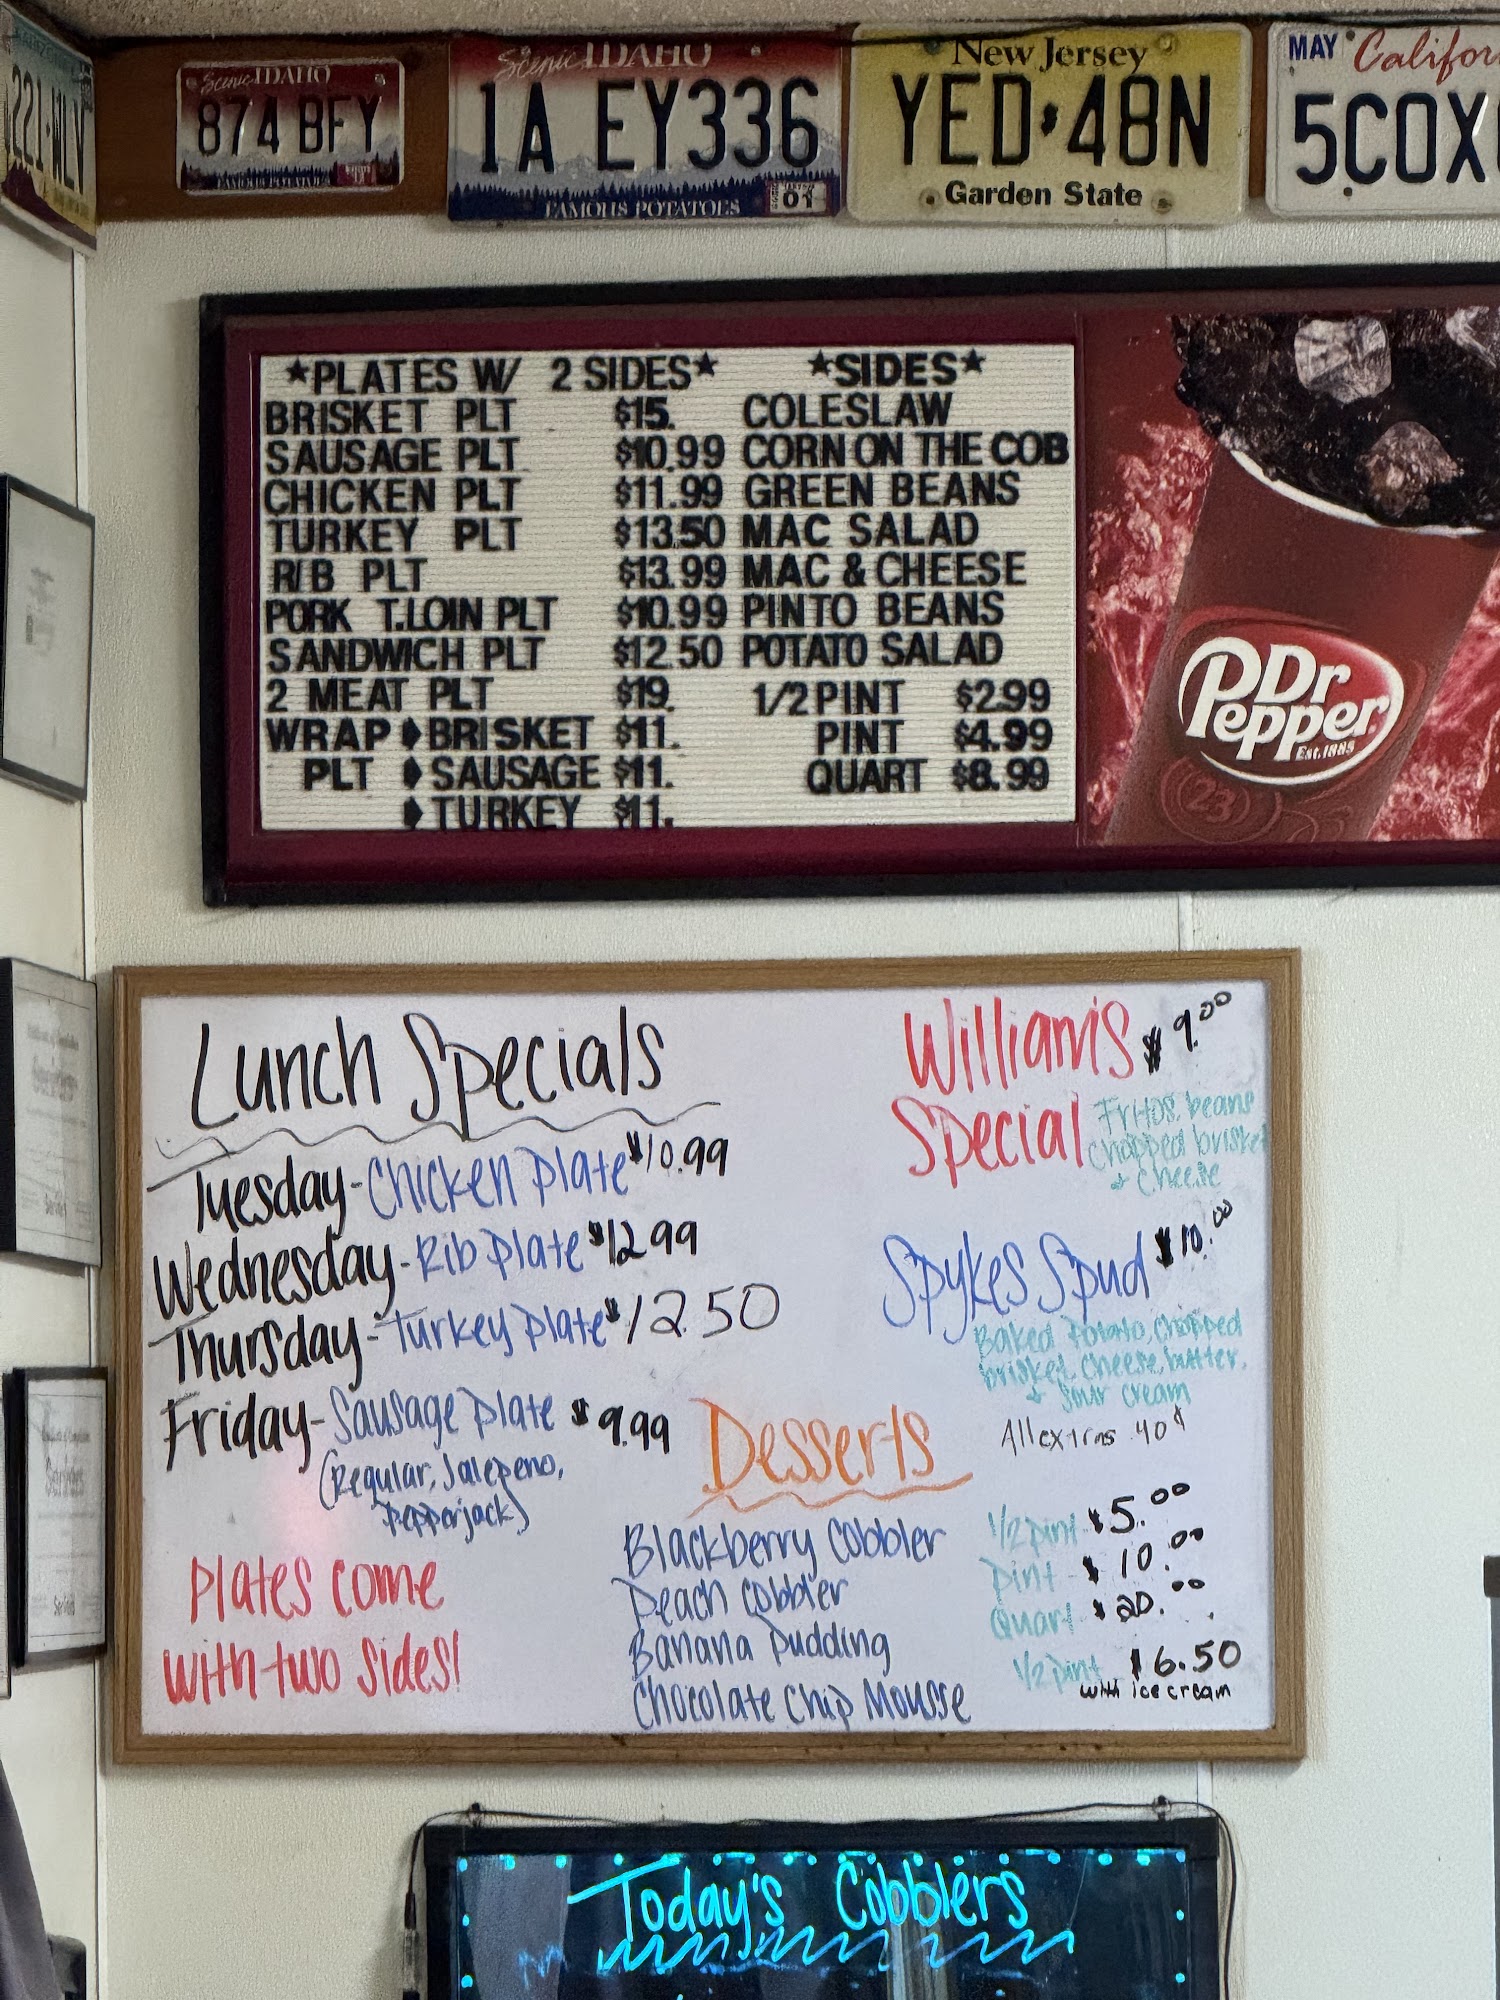 Scenic IDAHO
874 BFY
FAMOUS POTATOES
Scenic IDAHO
1A EY336
FAMOUS POTATOES
01
New Jersey
YED 48N
Garden State
MAY
5COX
★PLATES W/ 2 SIDES★
BRISKET PLT $15.
SAUSAGE PLT $10.99
CHICKEN PLT $11.99
TURKEY PLT $13.50
RIB PLT $13.99
PORK T.LOIN PLT $10.99
SANDWICH PLT $12.50
2 MEAT PLT $19.
WRAP ♦ BRISKET $11.
PLT ♦ SAUSAGE $11.
♦ TURKEY $11.
★SIDES★
COLESLAW
CORN ON THE COB
GREEN BEANS
MAC SALAD
MAC & CHEESE
PINTO BEANS
POTATO SALAD
1/2 PINT $2.99
PINT $4.99
QUART $8.99
Dr
Pepper
Est. 1885
23
Lunch Specials
Tuesday-Chicken Plate $10.99
Wednesday-Rib Plate $12.99
Thursday-Turkey Plate $12.50
Friday-Sausage Plate $9.99
(Regular, Jalepeno,
Pepperjack)
Plates come
with two sides!
William's $9.00
Special
Fritos, beans
chopped brisket
+ cheese
Spykes Spud $10.00
Baked Potato, chopped
brisket, cheese, butter,
+ sour cream
All extras .40¢
Desserts
Blackberry Cobbler
Peach Cobbler
Banana Pudding
Chocolate Chip Mousse
1/2 pint $5.00
pint - $10.00
Quart $20.00
1/2 pint $6.50
with ice cream
Today's Cobblers